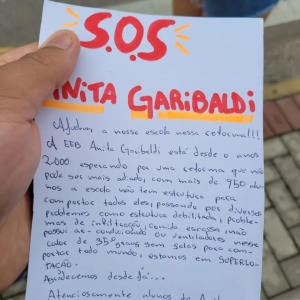 S.O.S
ANITA GARIBALDI
Ajudem a nossa escola nessa reforma!!!
A EEB Anita Garibaldi está desde o anos
2.000 esperando por uma reforma que não
pode ser mais adiada, com mais de 750 alu-
nos a escola não tem estrutura para
comportar todos eles, passando por diversos
problemas como estrutura debilitada, proble-
mas de infiltração, comida escassa, não
possui ar-condicionado ou ventiladores nesse
calor de 35° graus, sem salas para com-
portar todo mundo, estamos em SUPERLO-
TAÇÃO.
Agradecemos desde já...
Atenciosamente alunos do